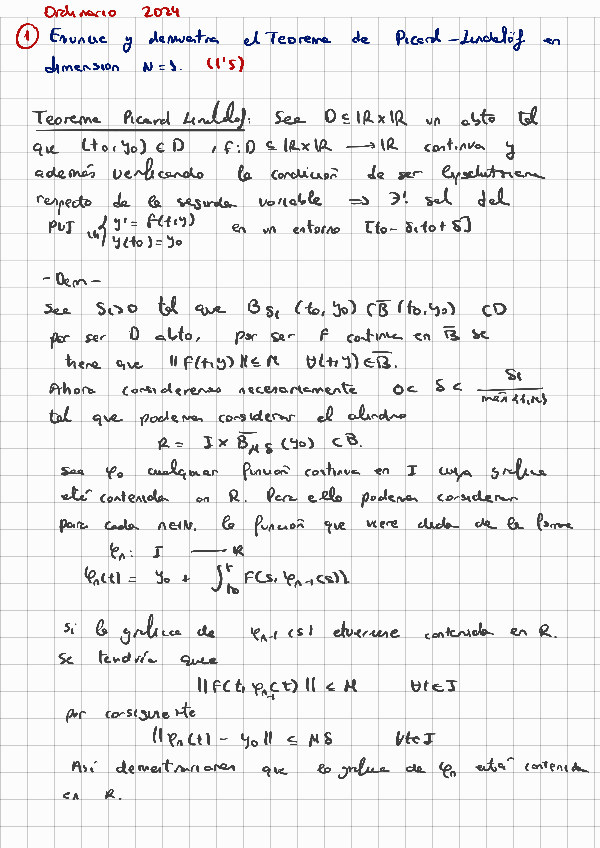 Ordinario 2024
① Enuncie y demuestra el Teorema de Picard-Lindelöf en
dimension N=1. (1'5)
Teorema Picard Lindelöf: Sea D ⊆ IR x IR un abto tal
que (t0, y0) ∈ D , f: D ⊆ IR x IR → IR continua y
además verificando la condición de ser lipschitziana
respecto de la segunda variable ⇒ ∃! sol del
PVI { y' = f(t,y)
y(t0) = y0 en un entorno [t0 - δ, t0 + δ]
- Dem -
Sea δ1>0 tal que B δ1 (t0, y0) ⊂ B̅ (t0, y0) ⊂ D
por ser D abto, por ser f continua en B̅ se
tiene que || f(t,y) || ≤ M ∀(t,y) ∈ B̅.
Ahora consideremos necesariamente 0 < δ < δ1 / max{1,M}
tal que podemos considerar el cilindro
R = I x B̅Mδ (y0) ⊂ B̅.
sea φ0 cualquier función continua en I cuya gráfica
está contenida en R. Para ello podemos considerar
para cada n∈IN. la función que viene dada de la forma
φn: I → IR
φn(t) = y0 + ∫t0^t f(s, φn-1(s))
Si la gráfica de φn-1(s) estuviese contenida en R.
Se tendría que
|| f(t, φn-1(t) || ≤ M ∀t∈I
por consiguiente
|| φn(t) - y0 || ≤ Mδ ∀t∈I
Así demostraremos que la gráfica de φn está contenida
en R.